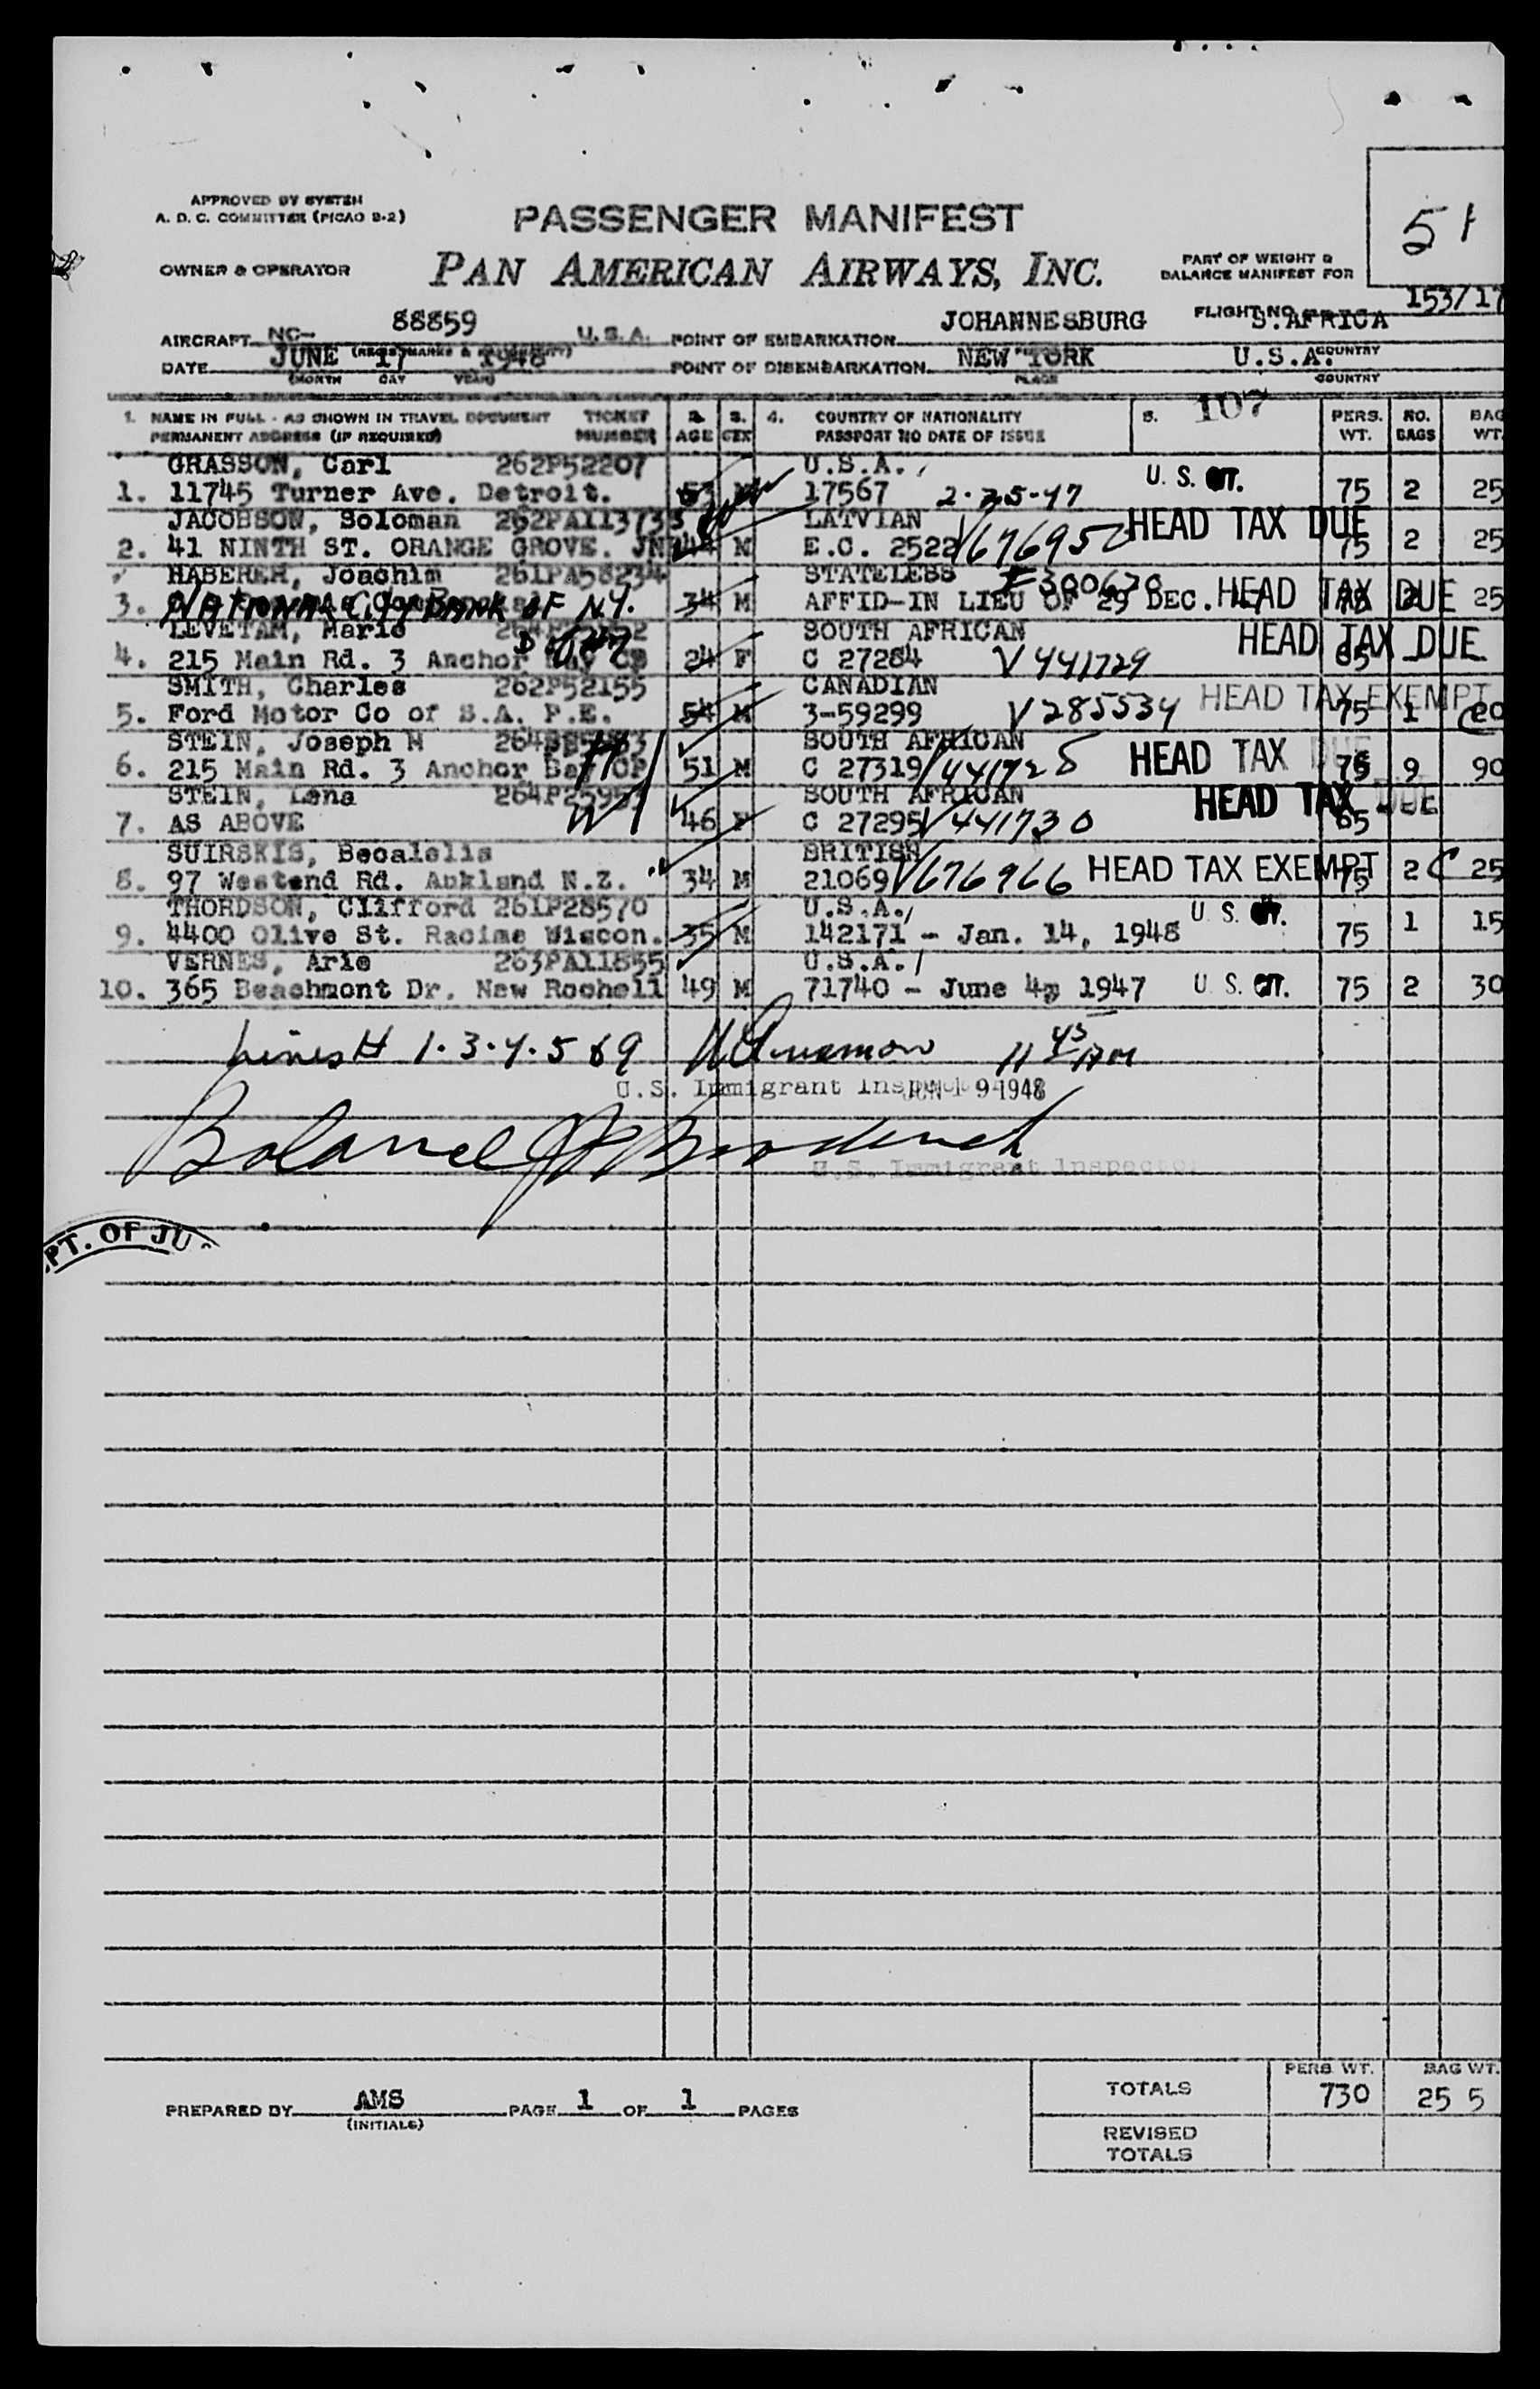 APPROVED BY SYSTEM
A. D. C. COMMITTEE (PICAO B-2)
PASSENGER MANIFEST
51
OWNER & OPERATOR
PAN AMERICAN AIRWAYS, INC.
PART OF WEIGHT &
BALANCE MANIFEST FOR
FLIGHT NO. 153/17
AIRCRAFT NC- 88859 U.S.A. POINT OF EMBARKATION JOHANNESBURG S. AFRICA
DATE JUNE 17 1948 POINT OF DISEMBARKATION NEW YORK U.S.A. COUNTRY
(MONTH DAY YEAR) PLACE COUNTRY
1. NAME IN FULL - AS SHOWN IN TRAVEL DOCUMENT TICKET 2. 3. 4. COUNTRY OF NATIONALITY 5. 107 PERS. NO. BAG
PERMANENT ADDRESS (IF REQUIRED) NUMBER AGE SEX PASSPORT NO DATE OF ISSUE WT. BAGS WT.
GRASSON, Carl 262P52207 U.S.A. U. S. CIT.
1. 11745 Turner Ave. Detroit. 53 M 17567 2-25-47 75 2 25
JACOBSON, Soloman 262PA113733 LATVIAN HEAD TAX DUE
2. 41 NINTH ST. ORANGE GROVE. JNB 44 M E.C. 2522 V676952 75 2 25
HABERER, Joachim 261PA58234 STATELESS F300670 HEAD TAX DUE
3. NATIONAL CITY BANK OF N.Y. 34 M AFFID-IN LIEU OF 29 DEC. 2 25
LEVETAN, Marie SOUTH AFRICAN HEAD TAX DUE
4. 215 Main Rd. 3 Anchor Bay CP 24 F C 27284 V441729 65
SMITH, Charles 262P52155 CANADIAN HEAD TAX EXEMPT
5. Ford Motor Co of S.A. P.E. 54 M 3-59299 V285534 75 1 20
STEIN, Joseph H SOUTH AFRICAN HEAD TAX DUE
6. 215 Main Rd. 3 Anchor Bay CP 51 M C 27319 V441728 75 9 90
STEIN, Lena SOUTH AFRICAN HEAD TAX DUE
7. AS ABOVE 46 F C 27295 V441730 65
SUIRSKIS, Becalelis BRITISH HEAD TAX EXEMPT
8. 97 Westend Rd. Aukland N.Z. 34 M 21069 V676966 75 2 C 25
THORDSON, Clifford 261P28570 U.S.A. U. S. CIT.
9. 4400 Olive St. Racime Wiscon. 35 M 142171 - Jan. 14, 1948 75 1 15
VERNES, Arie 263PA11855 U.S.A.
10. 365 Beachmont Dr. New Rochell 49 M 71740 - June 4, 1947 U. S. CIT. 75 2 30
Lines # 1.3.4.5 & 9 11 45 AM
U.S. Immigrant Inspector JUN 19 1948
Balance
U.S. Immigrant Inspector
PT. OF JU
TOTALS PERS WT. 730 BAG WT. 25 5
PREPARED BY AMS PAGE 1 OF 1 PAGES
(INITIALS)
REVISED
TOTALS